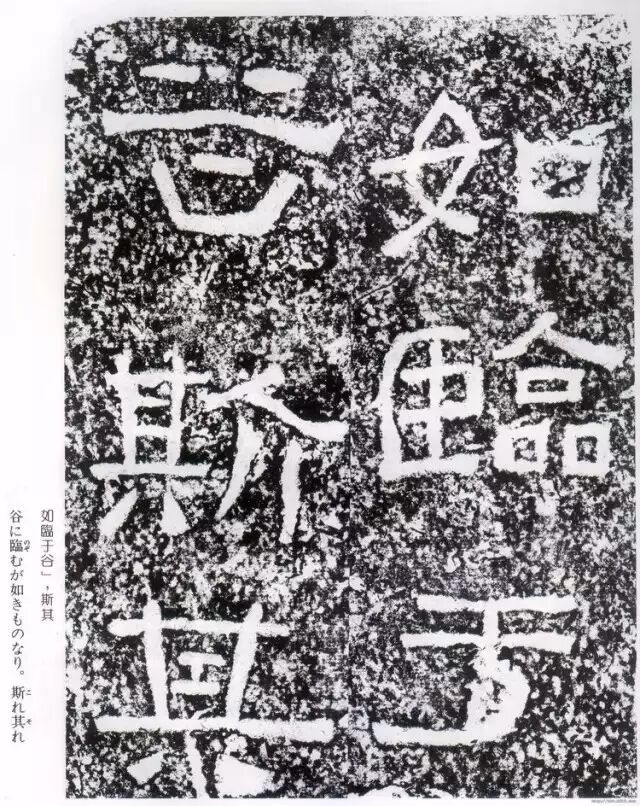 如臨于
谷斯其
如臨于谷」，斯其
谷に臨むが如きものなり。斯れ其れ
のぞ
こ
そ